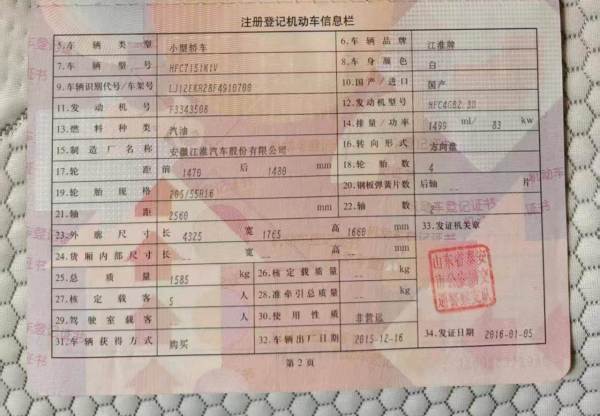 注册登记机动车信息栏
5.车辆类型 小型轿车 6.车辆品牌 江淮牌
7.车辆型号 HFC7151K1V 8.车身颜色 白
9.车辆识别代号/车架号 10.国产/进口 国产
11.发动机号 F3343508 12.发动机型号 HFC4GB2.3D
13.燃料种类 汽油 14.排量/功率 1499 ml/ 83 kw
15.制造厂名称 安徽江淮汽车股份有限公司 16.转向形式 方向盘
17.轮距 前 1470 后 1480 mm 18.轮胎数 4
19.轮胎规格 205/55R16 20.钢板弹簧片数 后轴 -- 片
21.轴距 2560 mm 22.轴数 2
23.外廓尺寸 长 4325 宽 1765 高 1660 mm 33.发证机关章
24.货厢内部尺寸 长 -- 宽 -- 高 -- mm
25.总质量 1585 kg 26.核定载质量 -- kg
27.核定载客 5 人 28.准牵引总质量 -- kg
29.驾驶室载客 -- 人 30.使用性质 非营运
31.车辆获得方式 购买 32.车辆出厂日期 2015-12-16 34.发证日期 2016-01-05
山东省泰安
第2页